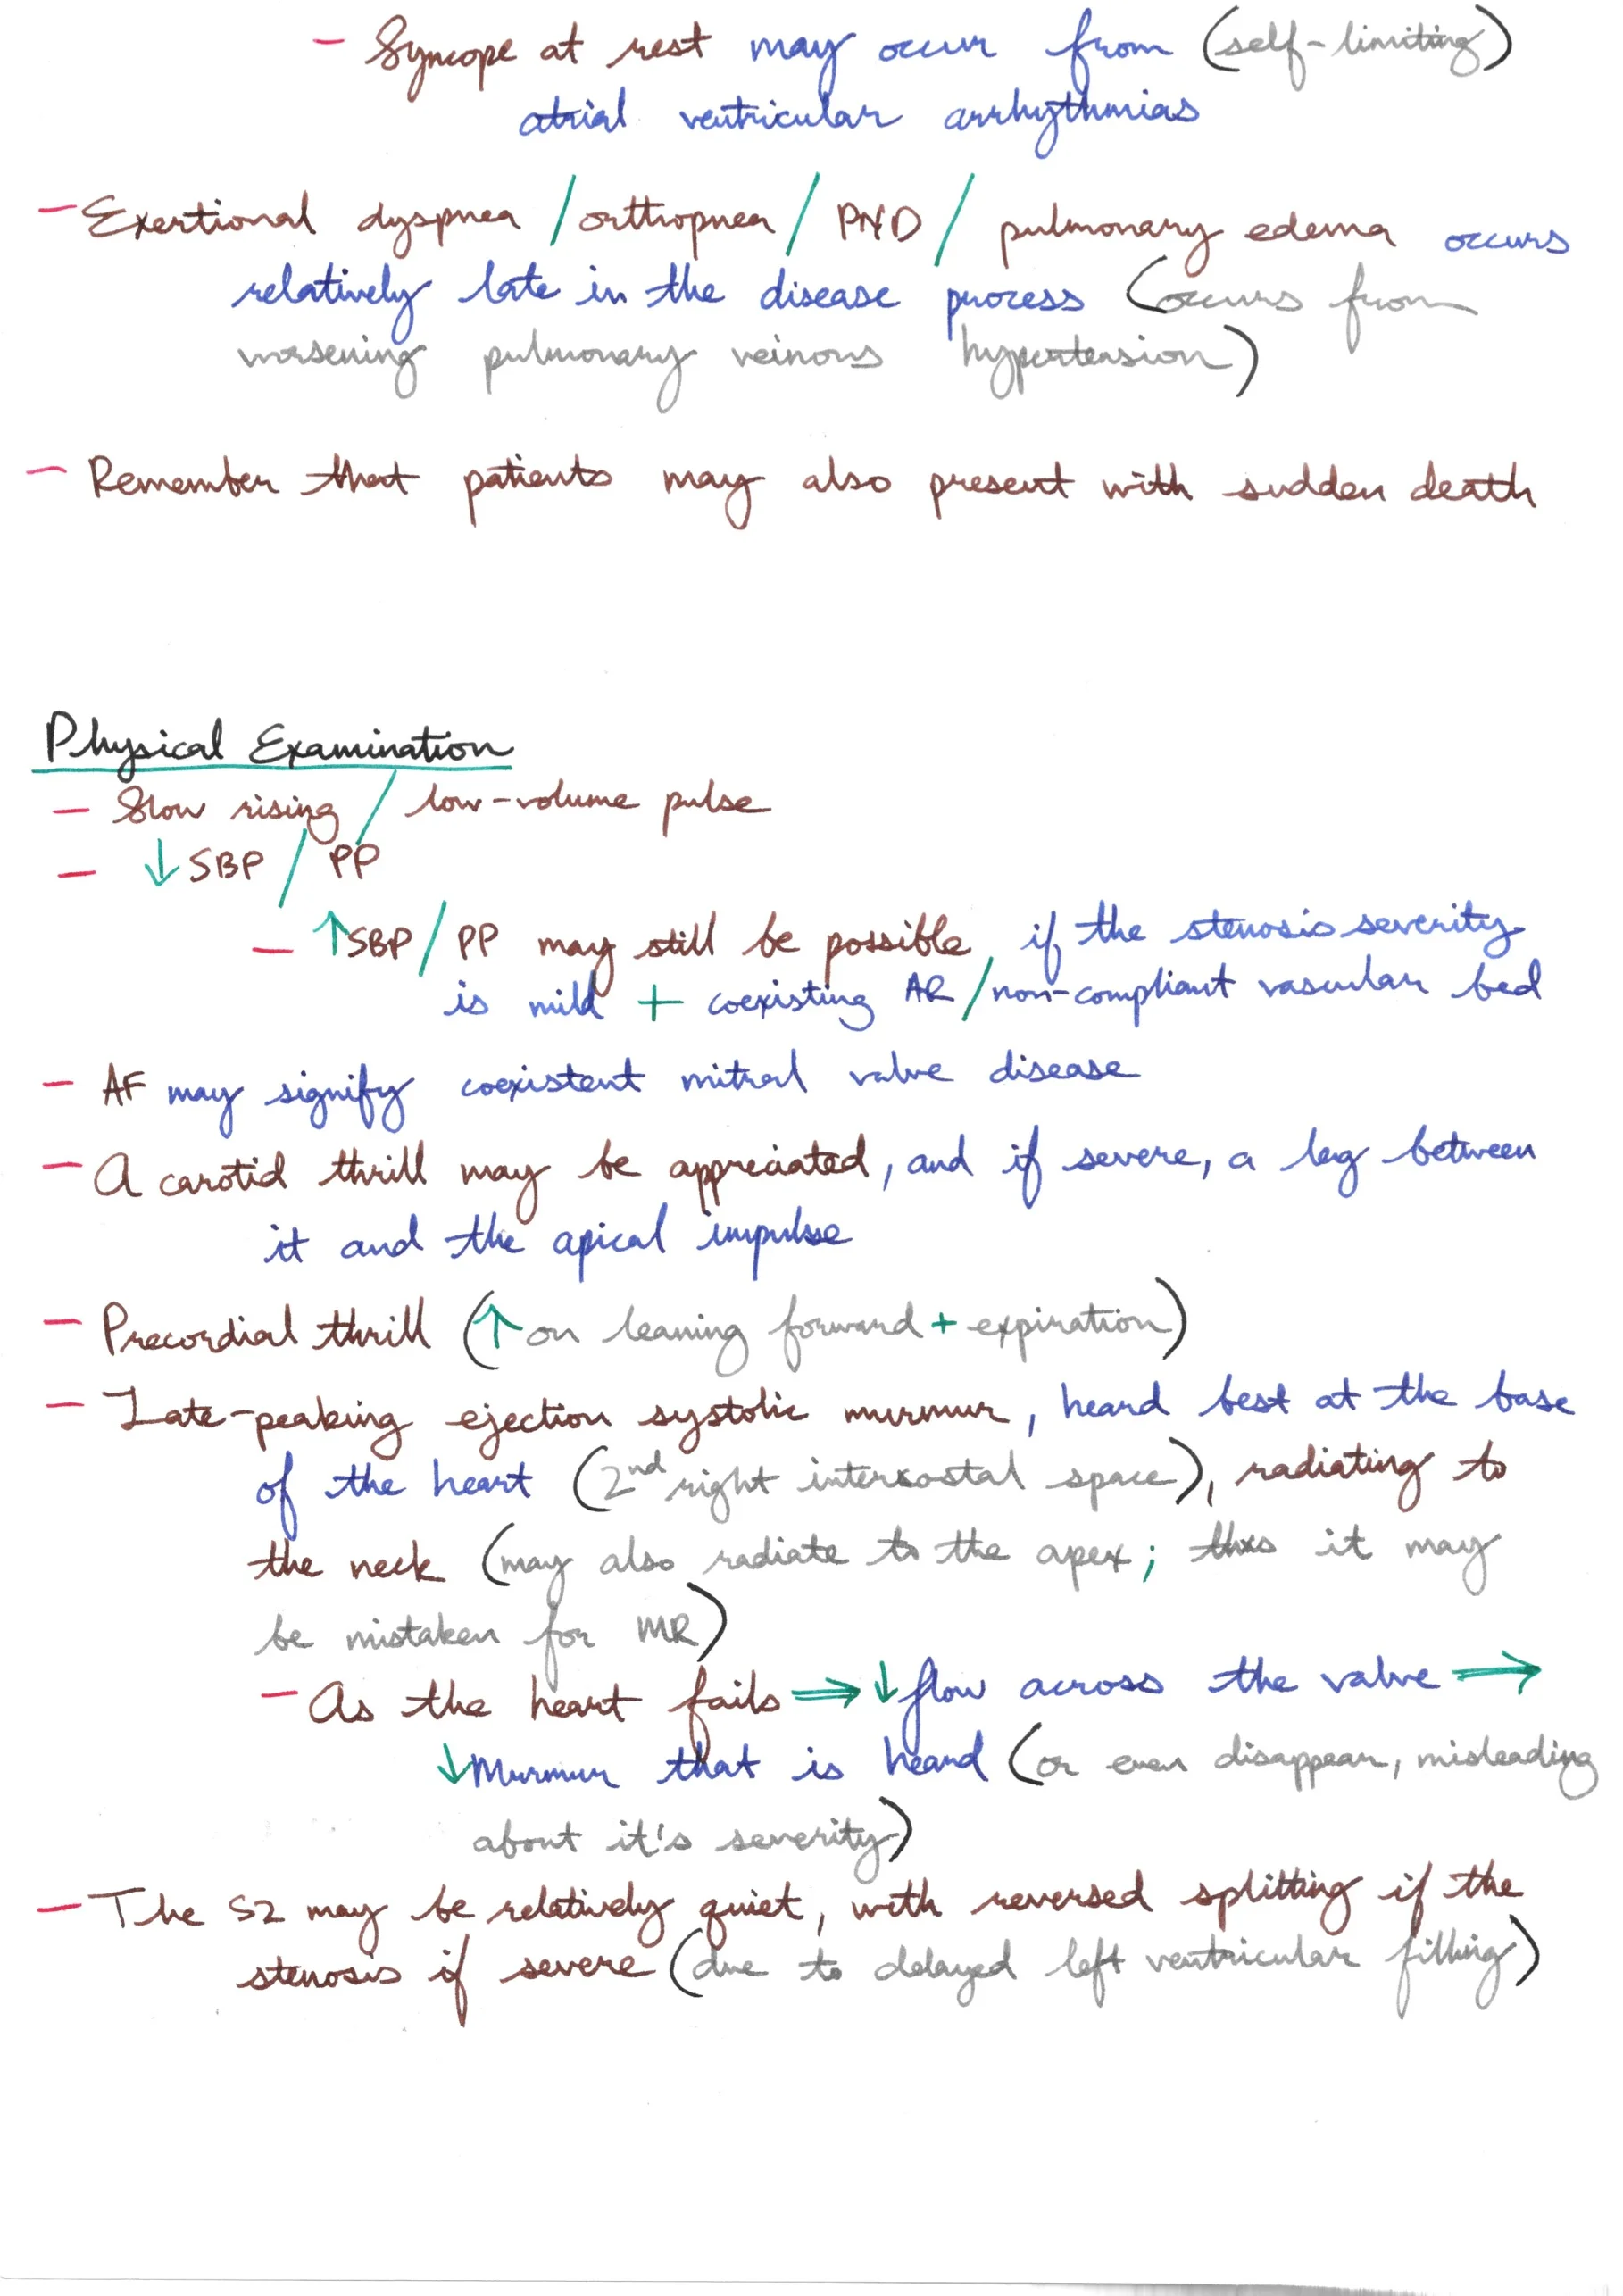 - Syncope at rest may occur from (self-limiting)
atrial ventricular arrhythmias
- Exertional dyspnea / orthopnea / PND / pulmonary edema occurs
relatively late in the disease process (occurs from
worsening pulmonary veinous hypertension)
- Remember that patients may also present with sudden death
Physical Examination
- Slow rising / low-volume pulse
- ↓ SBP / PP
- ↑ SBP / PP may still be possible if the stenosis severity
is mild + coexisting AR / non-compliant vascular bed
- AF may signify coexistent mitral valve disease
- A carotid thrill may be appreciated, and if severe, a lag between
it and the apical impulse
- Precordial thrill (↑ on leaning forward + expiration)
- Late-peaking ejection systolic murmur, heard best at the base
of the heart (2nd right intercostal space), radiating to
the neck (may also radiate to the apex; thus it may
be mistaken for MR)
- As the heart fails → ↓ flow across the valve →
↓ Murmur that is heard (or even disappear, misleading
about it's severity)
- The S2 may be relatively quiet, with reversed splitting if the
stenosis if severe (due to delayed left ventricular filling)